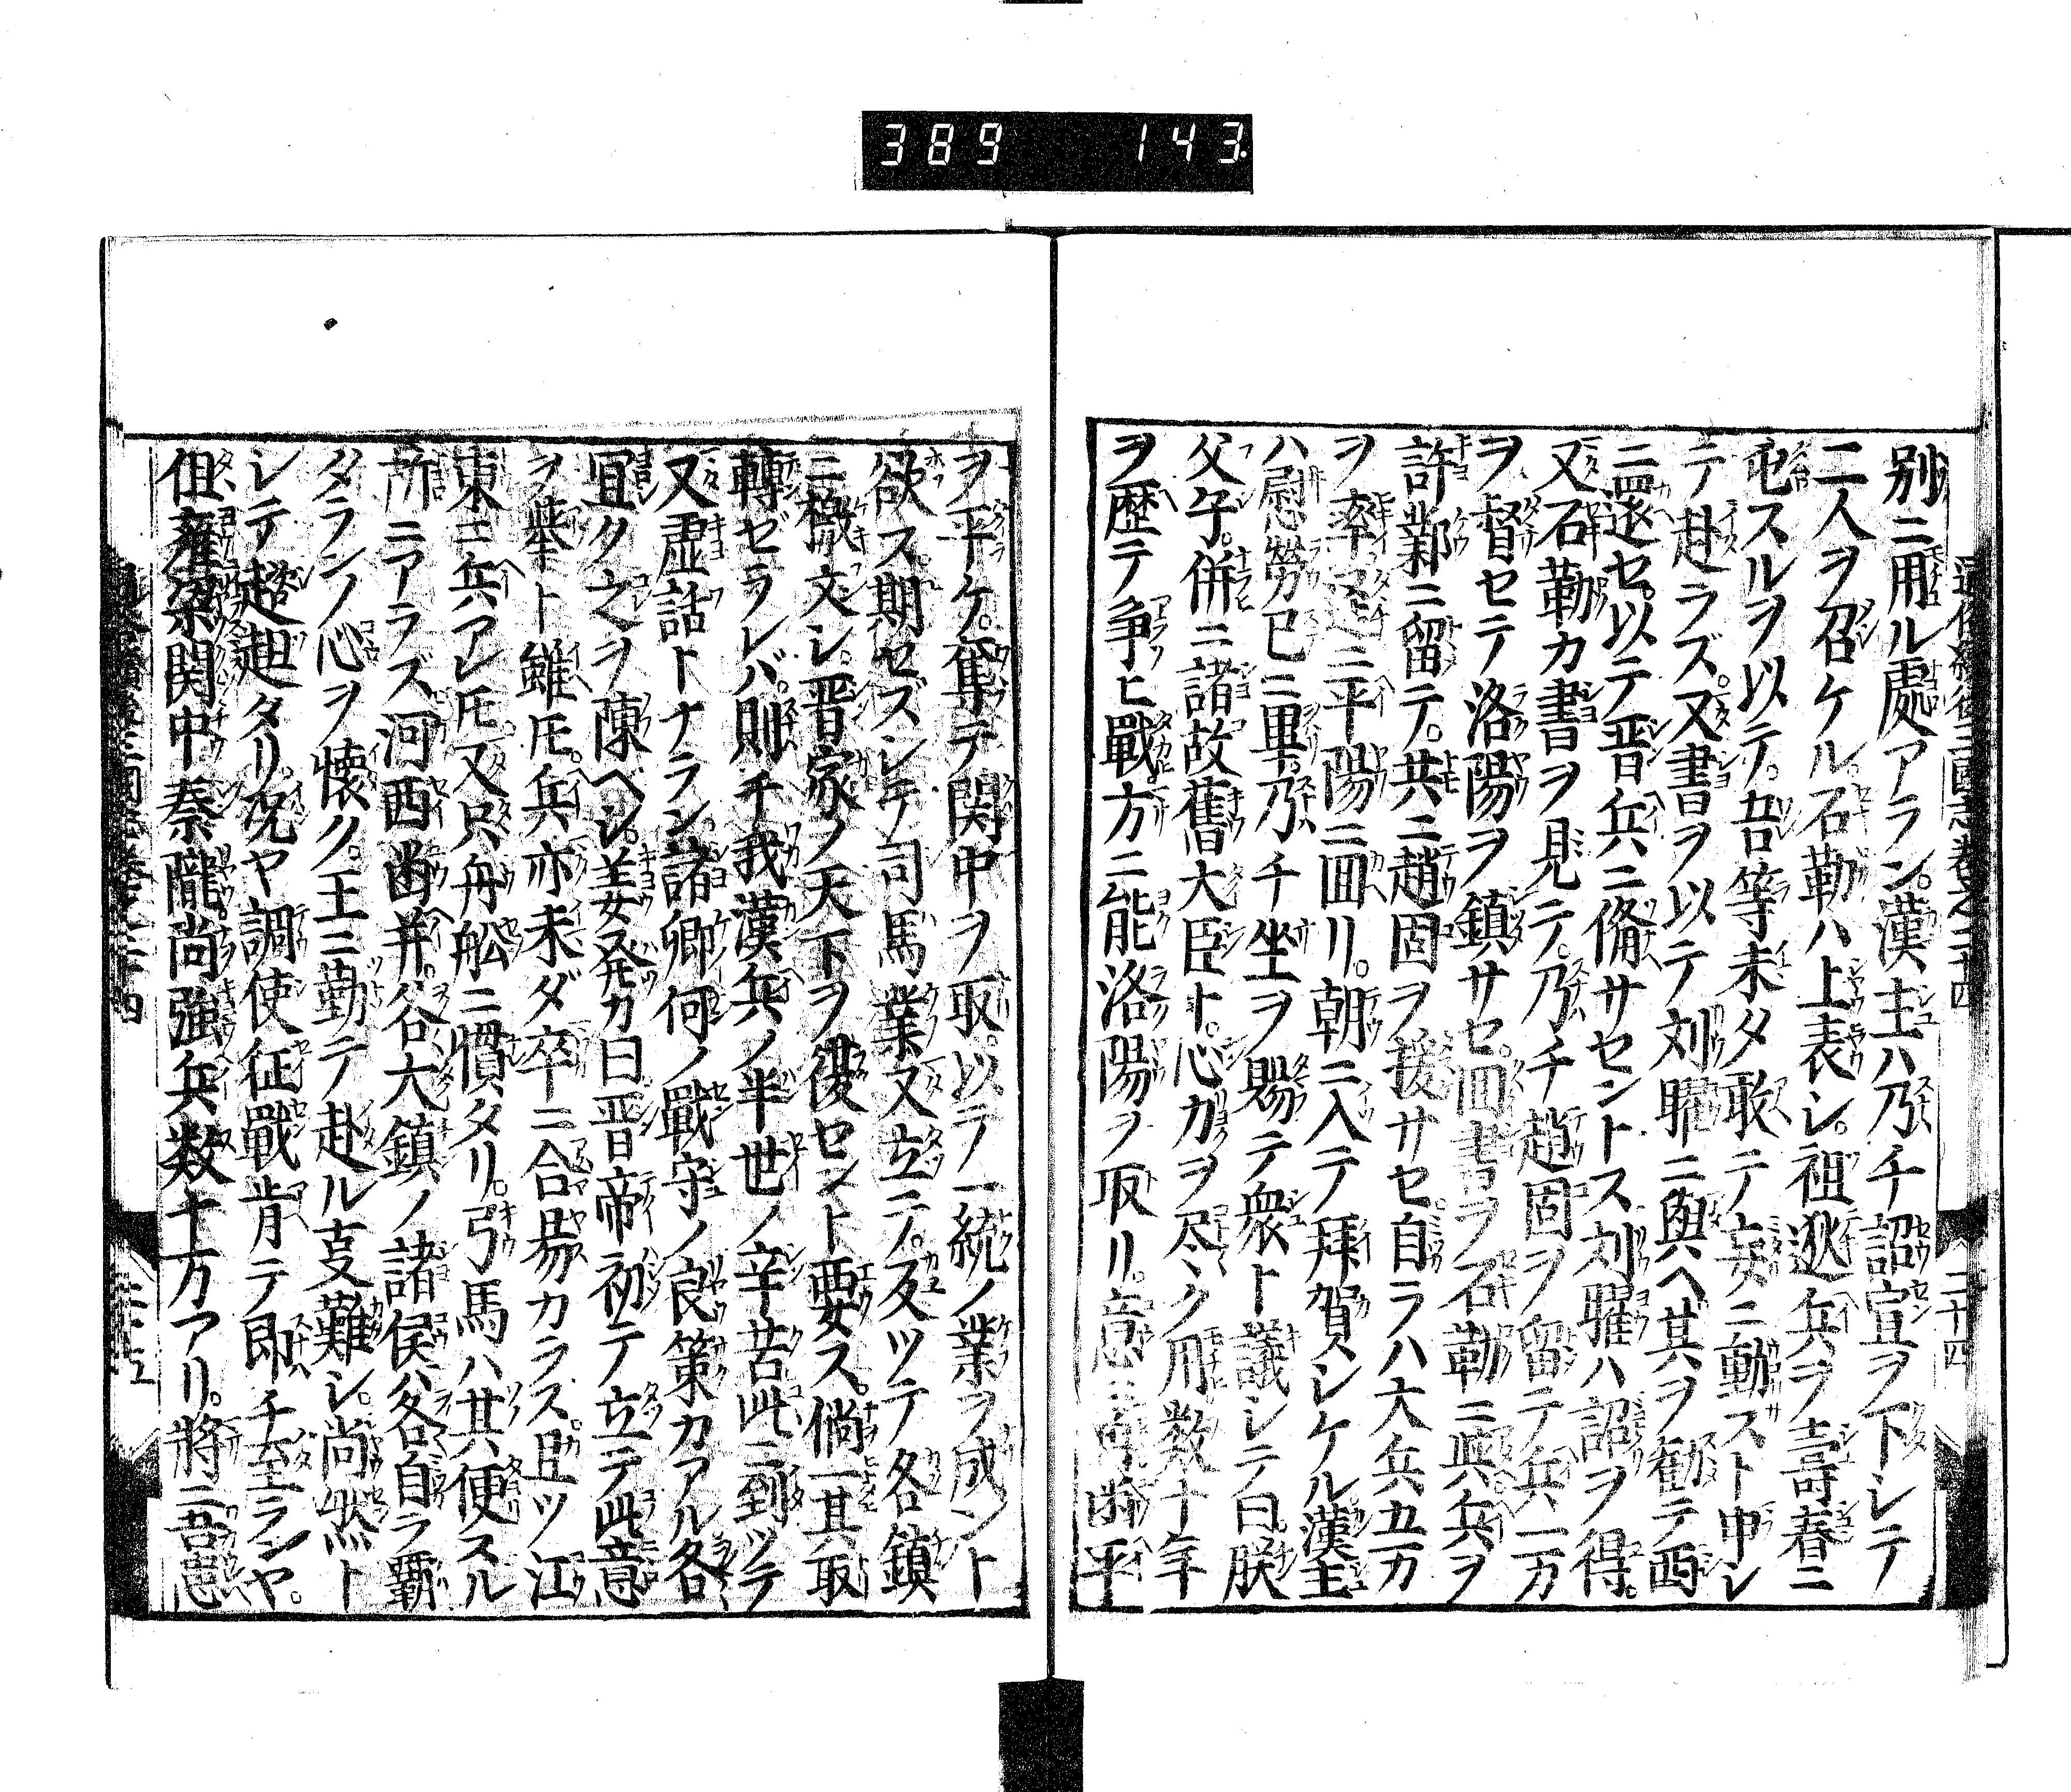 389 143
別ニ用ル處アラン。漢主ハ乃チ詔宣ヲ下シテ
二人ヲ召ケル。石勒ハ上表シ。祖逖兵ヲ壽春ニ
屯スルヲ以テ。吾等未タ敢テ妄ニ動スト申シ
テ赴ラズ。又書ヲ以テ刘曜ニ與ヘ其ヲ勧テ西
ニ還セ。以テ晋兵ニ備サセントス刘曜ハ詔ヲ得。
又石勒カ書ヲ見テ。乃チ趙固ヲ留テ兵一万
ヲ督セテ洛陽ヲ鎮サセ。回書ヲ石勒ニ與。兵ヲ
許鄴ニ留テ。共ニ趙固ヲ援サセ。自ラハ大兵五万
ヲ率逕ニ平陽ニ回リ。朝ニ入テ拜賀シケル漢主
ハ慰勞已ニ畢。乃チ坐ヲ賜テ衆ト議シテ曰。朕
父子。併ニ諸故舊大臣ト。心カヲ尽ク用数十年
ヲ歴テ争ヒ戰方ニ能洛陽ヲ取リ。意
平
ヲ平ケ。奪テ関中ヲ取。以テ一統ノ業ヲ成ント
欲ス。期セズシテ司馬業又立テ。反ツテ各鎮
ニ檄文シ。晋家ノ天下ヲ復セント要ス。倘一其取
轉ゼラレバ。則チ我漢兵ノ半世ノ辛苦。此ニ到ツテ
又虚話トナラン。諸卿何ノ戰守ノ良策カアル各
宜ク之ヲ陳ベシ。姜発カ曰晋帝初テ立テ此意
ヲ挙ト雖𪜈。兵亦未ダ卒ニ合易カラス。且ツ江
東ニ兵アレ𪜈。又只舟舩ニ慣タリ。弓馬ハ其便スル
所ニアラズ。河西幽并。谷大鎮ノ諸侯ハ各自ラ覇
タランノ心ヲ懐ク。王ニ勤テ赴ル支難シ。尚然ト
シテ趑趄タリ。况ヤ調使征戰肯テ即チ至ランヤ。
但雍梁関中秦隴。尚強兵数十万アリ。將ニ吾患